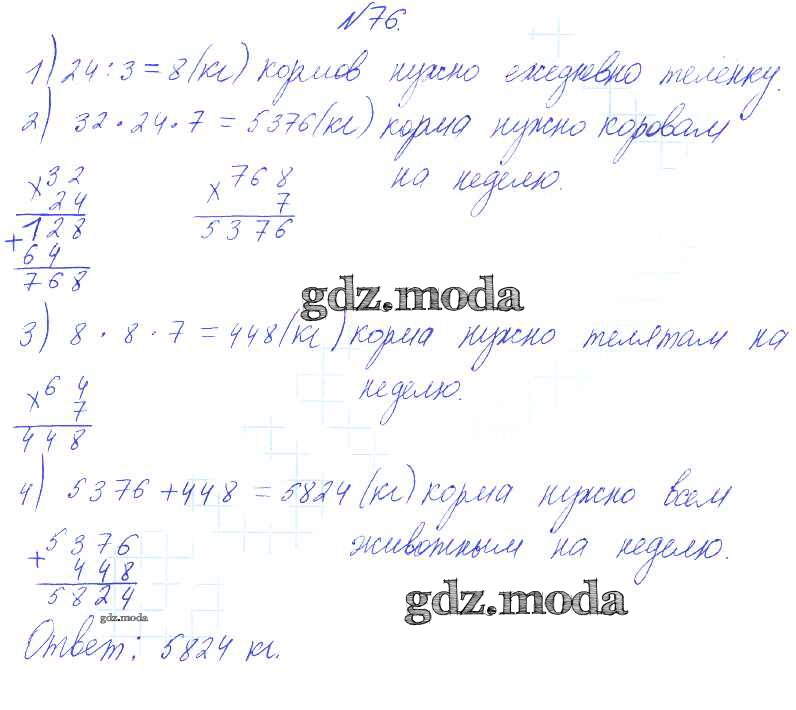 №76.
1) 24:3=8(кг) кормов нужно ежедневно теленку.
2) 32·24·7=5376(кг) корма нужно коровам
на неделю.
×32
24
128
+64
768
×768
7
5376
gdz.moda
3) 8·8·7=448(кг) корма нужно телятам на
неделю.
×64
7
448
4) 5376+448=5824(кг) корма нужно всем
животным на неделю.
+5376
448
5824
gdz.moda
gdz.moda
Ответ: 5824 кг.